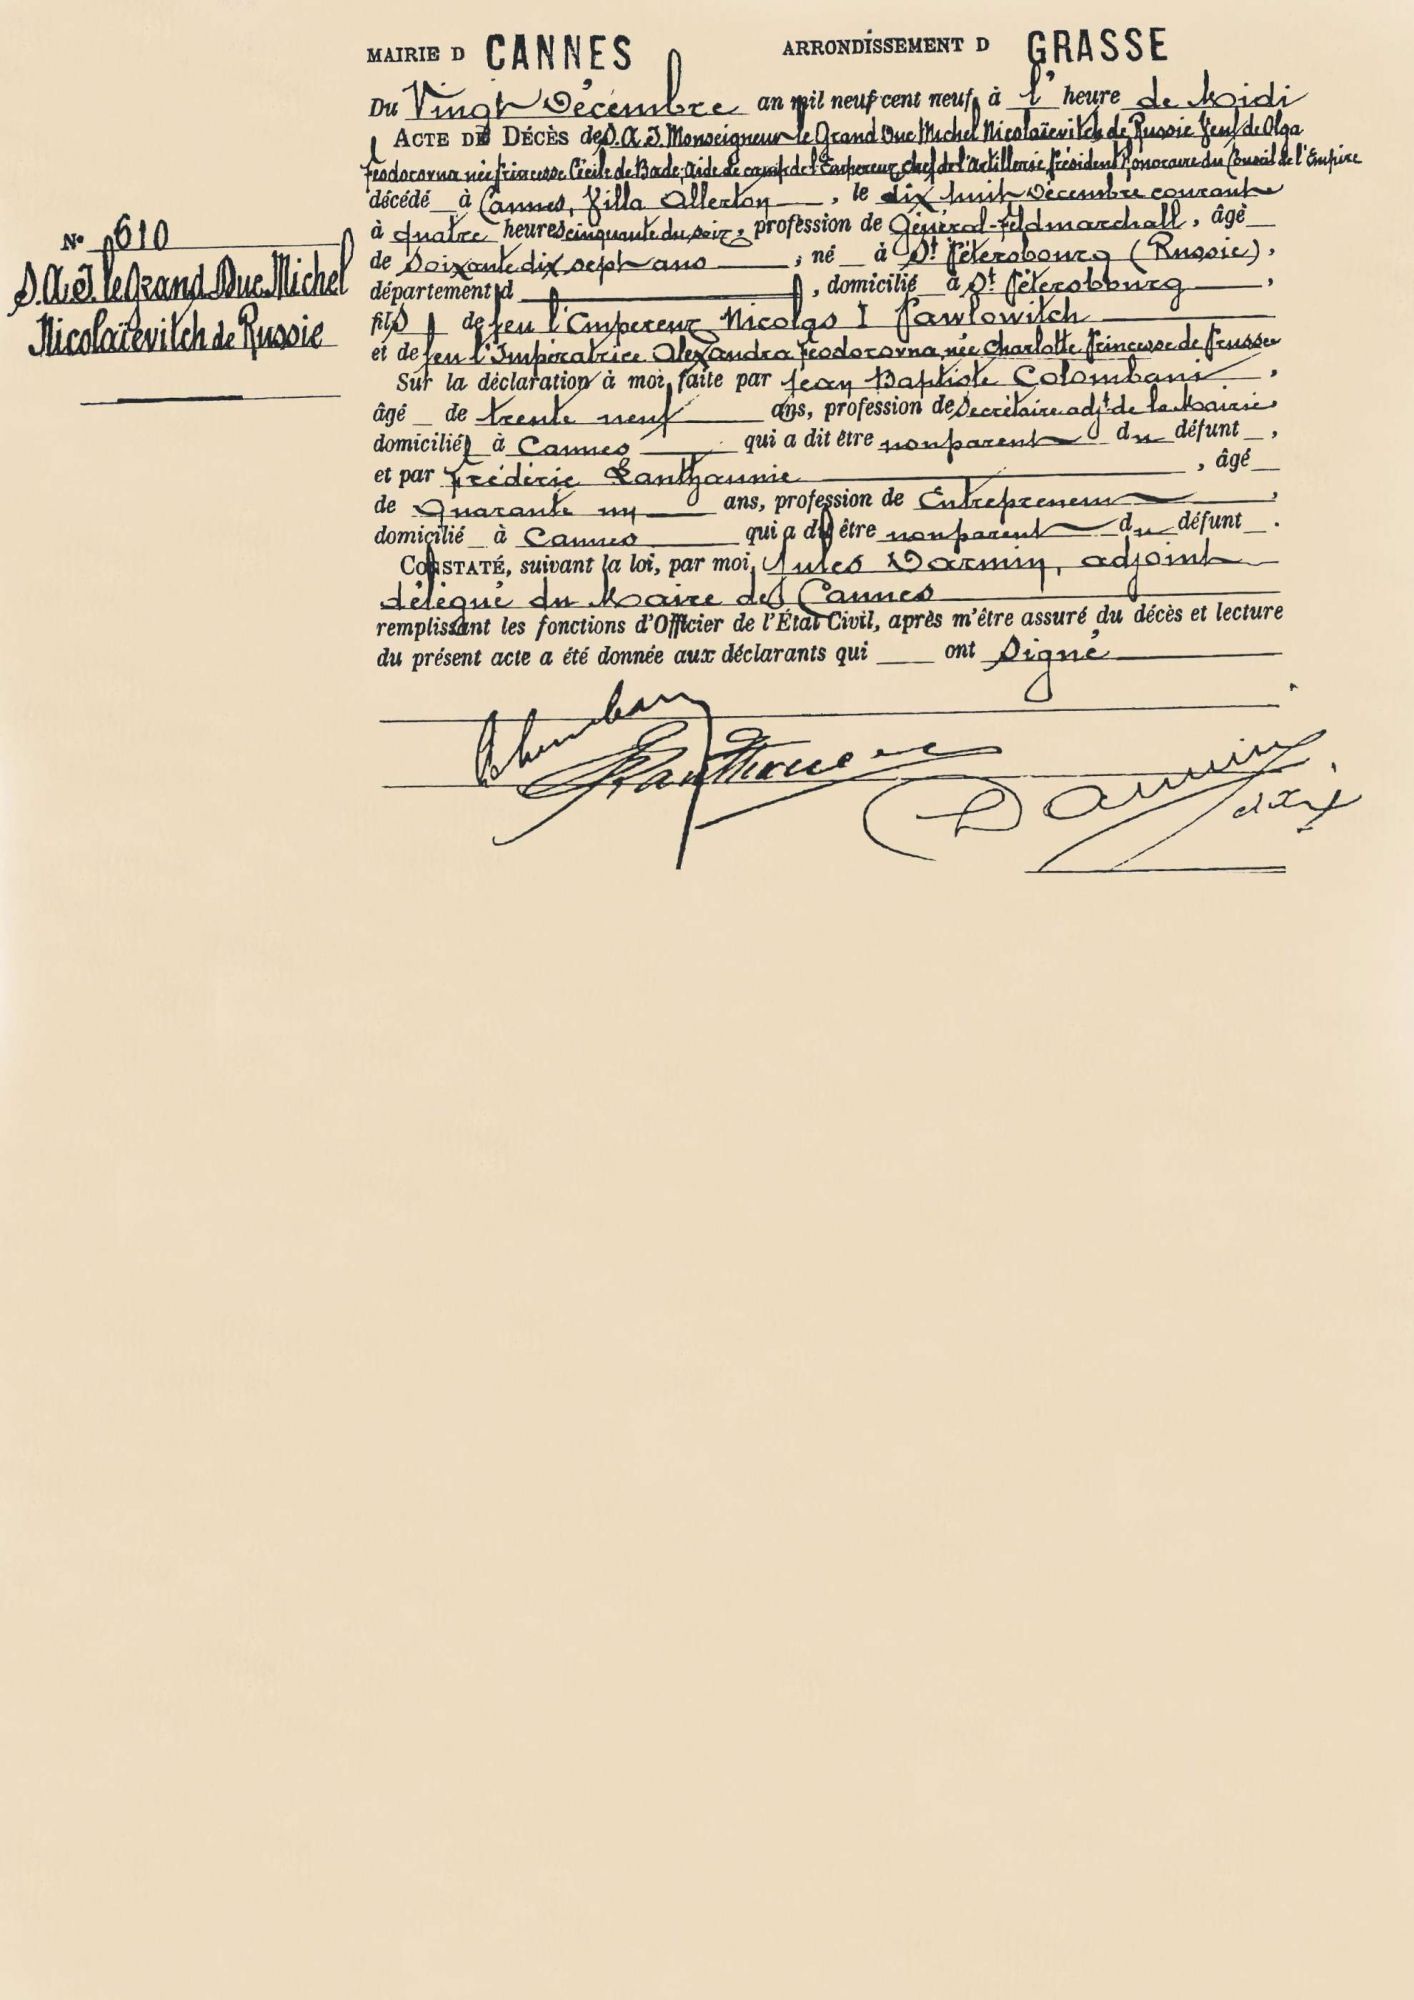 MAIRIE D CANNES ARRONDISSEMENT D GRASSE
Du Vingt Décembre an mil neuf cent neuf, à l' heure de Midi
ACTE DE DÉCÈS de S. A. I. Monseigneur le Grand Duc Michel Nicolaïevitch de Russie Veuf de Olga
Feodorovna née Princesse Cécile de Bade, Aide de camp de l'Empereur, Chef de l'Artillerie, Président honoraire du Conseil de l'Empire
décédé à Cannes, Villa Allerton, le dix huit Décembre courant
à quatre heures cinquante du soir, profession de Général-Feldmarchall, âgé
de Soixante dix sept ans, né à St Pétersbourg (Russie),
département d , domicilié à St Pétersbourg,
fils de feu l'Empereur Nicolas I Pawlowitch
et de feu l'Impératrice Alexandra Feodorovna née Charlotte Princesse de Prusse
Sur la déclaration à moi faite par Jean Baptiste Colombani,
âgé de trente neuf ans, profession de Secrétaire adjt de la Mairie,
domicilié à Cannes qui a dit être non parent du défunt,
et par Frédéric , âgé
de Quarante un ans, profession de Entrepreneur,
domicilié à Cannes qui a dit être non parent du défunt.
CONSTATÉ, suivant la loi, par moi, Jules Darmin, adjoint
délégué du Maire de Cannes
remplissant les fonctions d'Officier de l'État Civil, après m'être assuré du décès et lecture
du présent acte a été donnée aux déclarants qui ont Signé
Nº 610
S. A. I. le Grand Duc Michel
Nicolaïevitch de Russie